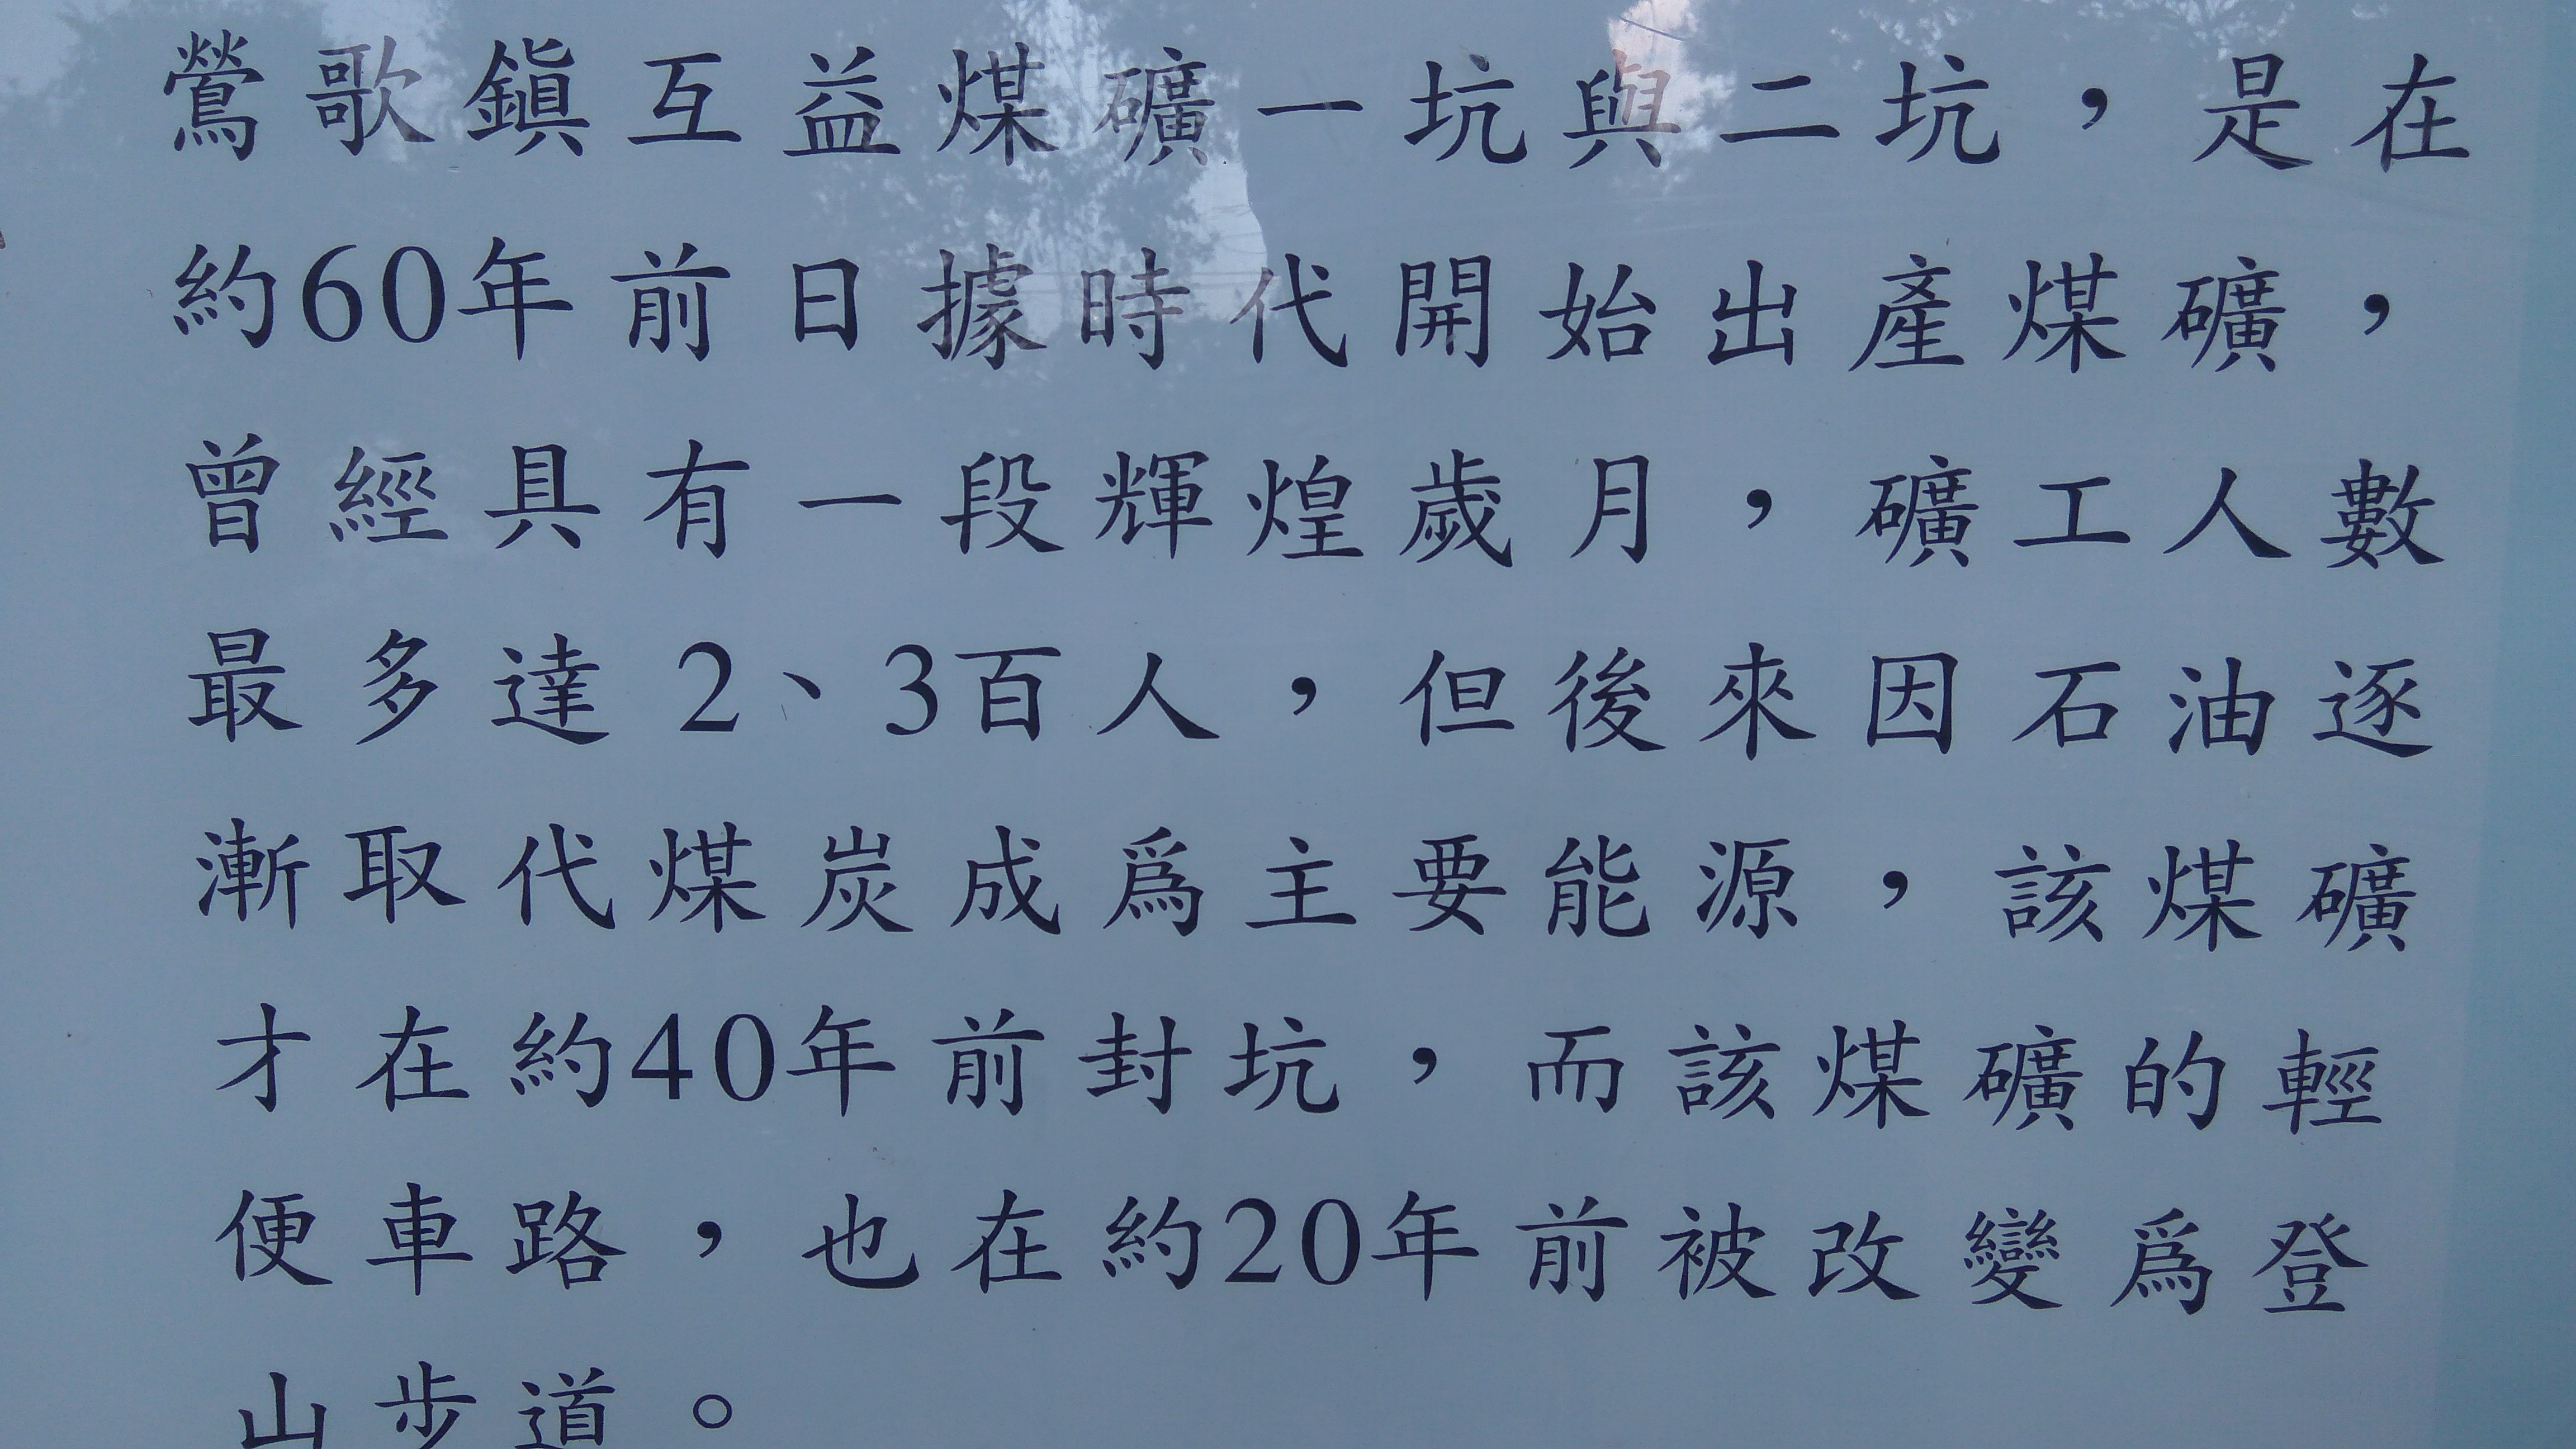 鶯歌鎭互益煤礦一坑與二坑，是在
約60年前日據時代開始出產煤礦，
曾經具有一段輝煌歲月，礦工人數
最多達2、3百人，但後來因石油逐
漸取代煤炭成爲主要能源，該煤礦
才在約40年前封坑，而該煤礦的輕
便車路，也在約20年前被改變爲登
山步道。